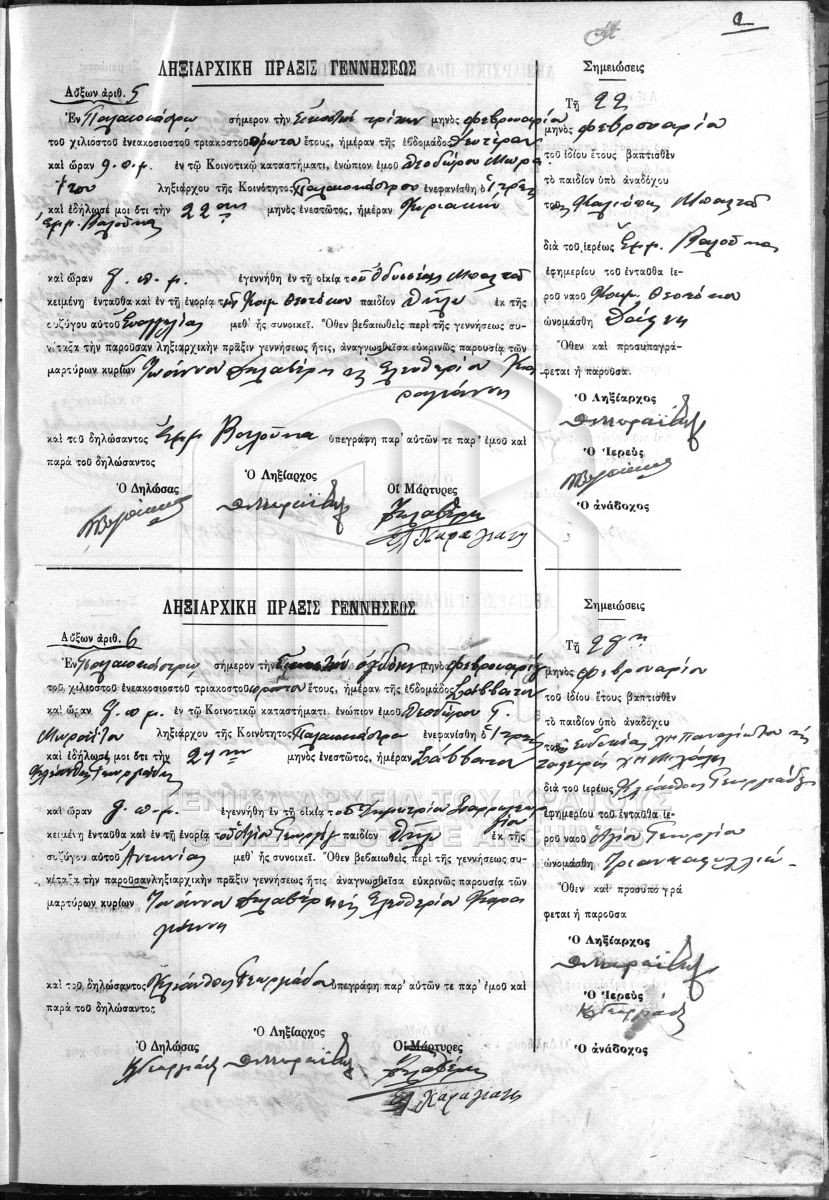 ΛΗΞΙΑΡΧΙΚΗ ΠΡΑΞΙΣ ΓΕΝΝΗΣΕΩΣ
Αὔξων ἀριθ. 5
Ἐν Παλαιοκάστρῳ σήμερον τὴν Εἰκοστὴν τρίτην μηνὸς Φεβρουαρίου
τοῦ χιλιοστοῦ ἐνεακοσιοστοῦ τριακοστοῦ πρώτου ἔτους, ἡμέραν τῆς ἑβδομάδος Δευτέραν
καὶ ὥραν 9. π. μ. ἐν τῷ Κοινοτικῷ καταστήματι, ἐνώπιον ἐμοῦ Θεοδώρου Μωραΐ
του ληξιάρχου τῆς Κοινότητος Παλαιοκάστρου ἐνεφανίσθη ὁ Ἱερεὺς
καὶ ἐδήλωσέ μοι ὅτι τὴν 22αν μηνὸς ἐνεστῶτος, ἡμέραν Κυριακὴν
Ἐμμ. Βαλούκας
καὶ ὥραν π. μ. ἐγεννήθη ἐν τῇ οἰκίᾳ τοῦ Ὀδυσσέως Μπαλτᾶ
κειμένῃ ἐνταῦθα καὶ ἐν τῇ ἐνορίᾳ τῆς Κοιμ. Θεοτόκου παιδίον θῆλυ ἐκ τῆς
συζύγου αὐτοῦ Εὐαγγελίας μεθ' ἧς συνοικεῖ. Ὅθεν βεβαιωθεὶς περὶ τῆς γεννήσεως συ-
νέταξα τὴν παροῦσαν ληξιαρχικὴν πρᾶξιν γεννήσεως ἥτις, ἀναγνωσθεῖσα εὐκρινῶς παρουσίᾳ τῶν
μαρτύρων κυρίων Ἰωάννου Δηλαβέρη καὶ Ἐλευθερίου Κα
ραγιάννη
καὶ τοῦ δηλώσαντος Ἐμμ Βαλούκα ὑπεγράφη παρ' αὐτῶν τε παρ' ἐμοῦ καὶ
παρὰ τοῦ δηλώσαντος
Ὁ Δηλώσας Ὁ Ληξίαρχος Οἱ Μάρτυρες
Καραγιάννη
Σημειώσεις
Τῇ 22
μηνὸς Φεβρουαρίου
τοῦ ἰδίου ἔτους βαπτισθὲν
τὸ παιδίον ὑπὸ ἀναδόχου
Καλιόπης Μπαλτᾶ
διὰ τοῦ ἱερέως Ἐμμ. Βαλούκα
ἐφημερίου τοῦ ἐνταῦθα ἱε-
ροῦ ναοῦ Κοιμ. Θεοτόκου
ὠνομάσθη Δάφνη
Ὅθεν καὶ προσυπογρά-
φεται ἡ παροῦσα.
Ὁ Ληξίαρχος
Ὁ Ἱερεὺς
Ὁ ἀνάδοχος
ΛΗΞΙΑΡΧΙΚΗ ΠΡΑΞΙΣ ΓΕΝΝΗΣΕΩΣ
Αὔξων ἀριθ. 6
Ἐν Παλαιοκάστρῳ σήμερον τὴν Εἰκοστὴν ὀγδόην μηνὸς Φεβρουαρίου
τοῦ χιλιοστοῦ ἐνεακοσιοστοῦ τριακοστοῦ πρώτου ἔτους, ἡμέραν τῆς ἑβδομάδος Σάββατον
καὶ ὥραν π. μ. ἐν τῷ Κοινοτικῷ καταστήματι. ἐνώπιον ἐμοῦ Θεοδώρου Γ.
Μωραΐτου ληξιάρχου τῆς Κοινότητος Παλαιοκάστρου ἐνεφανίσθη ὁ Ἱερεὺς
καὶ ἐδήλωσέ μοι ὅτι τὴν μηνὸς ἐνεστῶτος, ἡμέραν Σάββατον
Κλεάνθης Γεωργιάδης
καὶ ὥραν π. μ. ἐγεννήθη ἐν τῇ οἰκίᾳ τοῦ Δημητρίου
κειμένῃ ἐνταῦθα καὶ ἐν τῇ ἐνορίᾳ τοῦ Ἁγίου Γεωργίου παιδίον θῆλυ ἐκ τῆς
συζύγου αὐτοῦ Ἀντωνίας μεθ' ἧς συνοικεῖ. Ὅθεν βεβαιωθεὶς περὶ τῆς γεννήσεως συ-
νέταξα τὴν παροῦσαν ληξιαρχικὴν πρᾶξιν γεννήσεως ἥτις ἀναγνωσθεῖσα εὐκρινῶς παρουσίᾳ τῶν
μαρτύρων κυρίων Ἰωάννου Δηλαβέρη καὶ Ἐλευθερίου Καρα
γιάννη
καὶ τοῦ δηλώσαντος Κλεάνθη Γεωργιάδου ὑπεγράφη παρ' αὐτῶν τε παρ' ἐμοῦ καὶ
παρὰ τοῦ δηλώσαντος
Ὁ Δηλώσας Ὁ Ληξίαρχος Οἱ Μάρτυρες
Καραγιάννης
Σημειώσεις
Τῇ
μηνὸς Φεβρουαρίου
τοῦ ἰδίου ἔτους βαπτισθὲν
τὸ παιδίον ὑπὸ ἀναδόχου
Εὐδοκίας Παναγιώτου
διὰ τοῦ ἱερέως Κλεάνθη Γεωργιάδη
ἐφημερίου τοῦ ἐνταῦθα ἱε-
ροῦ ναοῦ Ἁγίου Γεωργίου
ὠνομάσθη Τριανταφυλλιὰ
Ὅθεν καὶ προσυπογρά
φεται ἡ παροῦσα
Ὁ Ληξίαρχος
Ὁ Ἱερεὺς
Ὁ ἀνάδοχος
ΓΕΝΙΚΑ ΑΡΧΕΙΑ ΤΟΥ ΚΡΑΤΟΥΣ